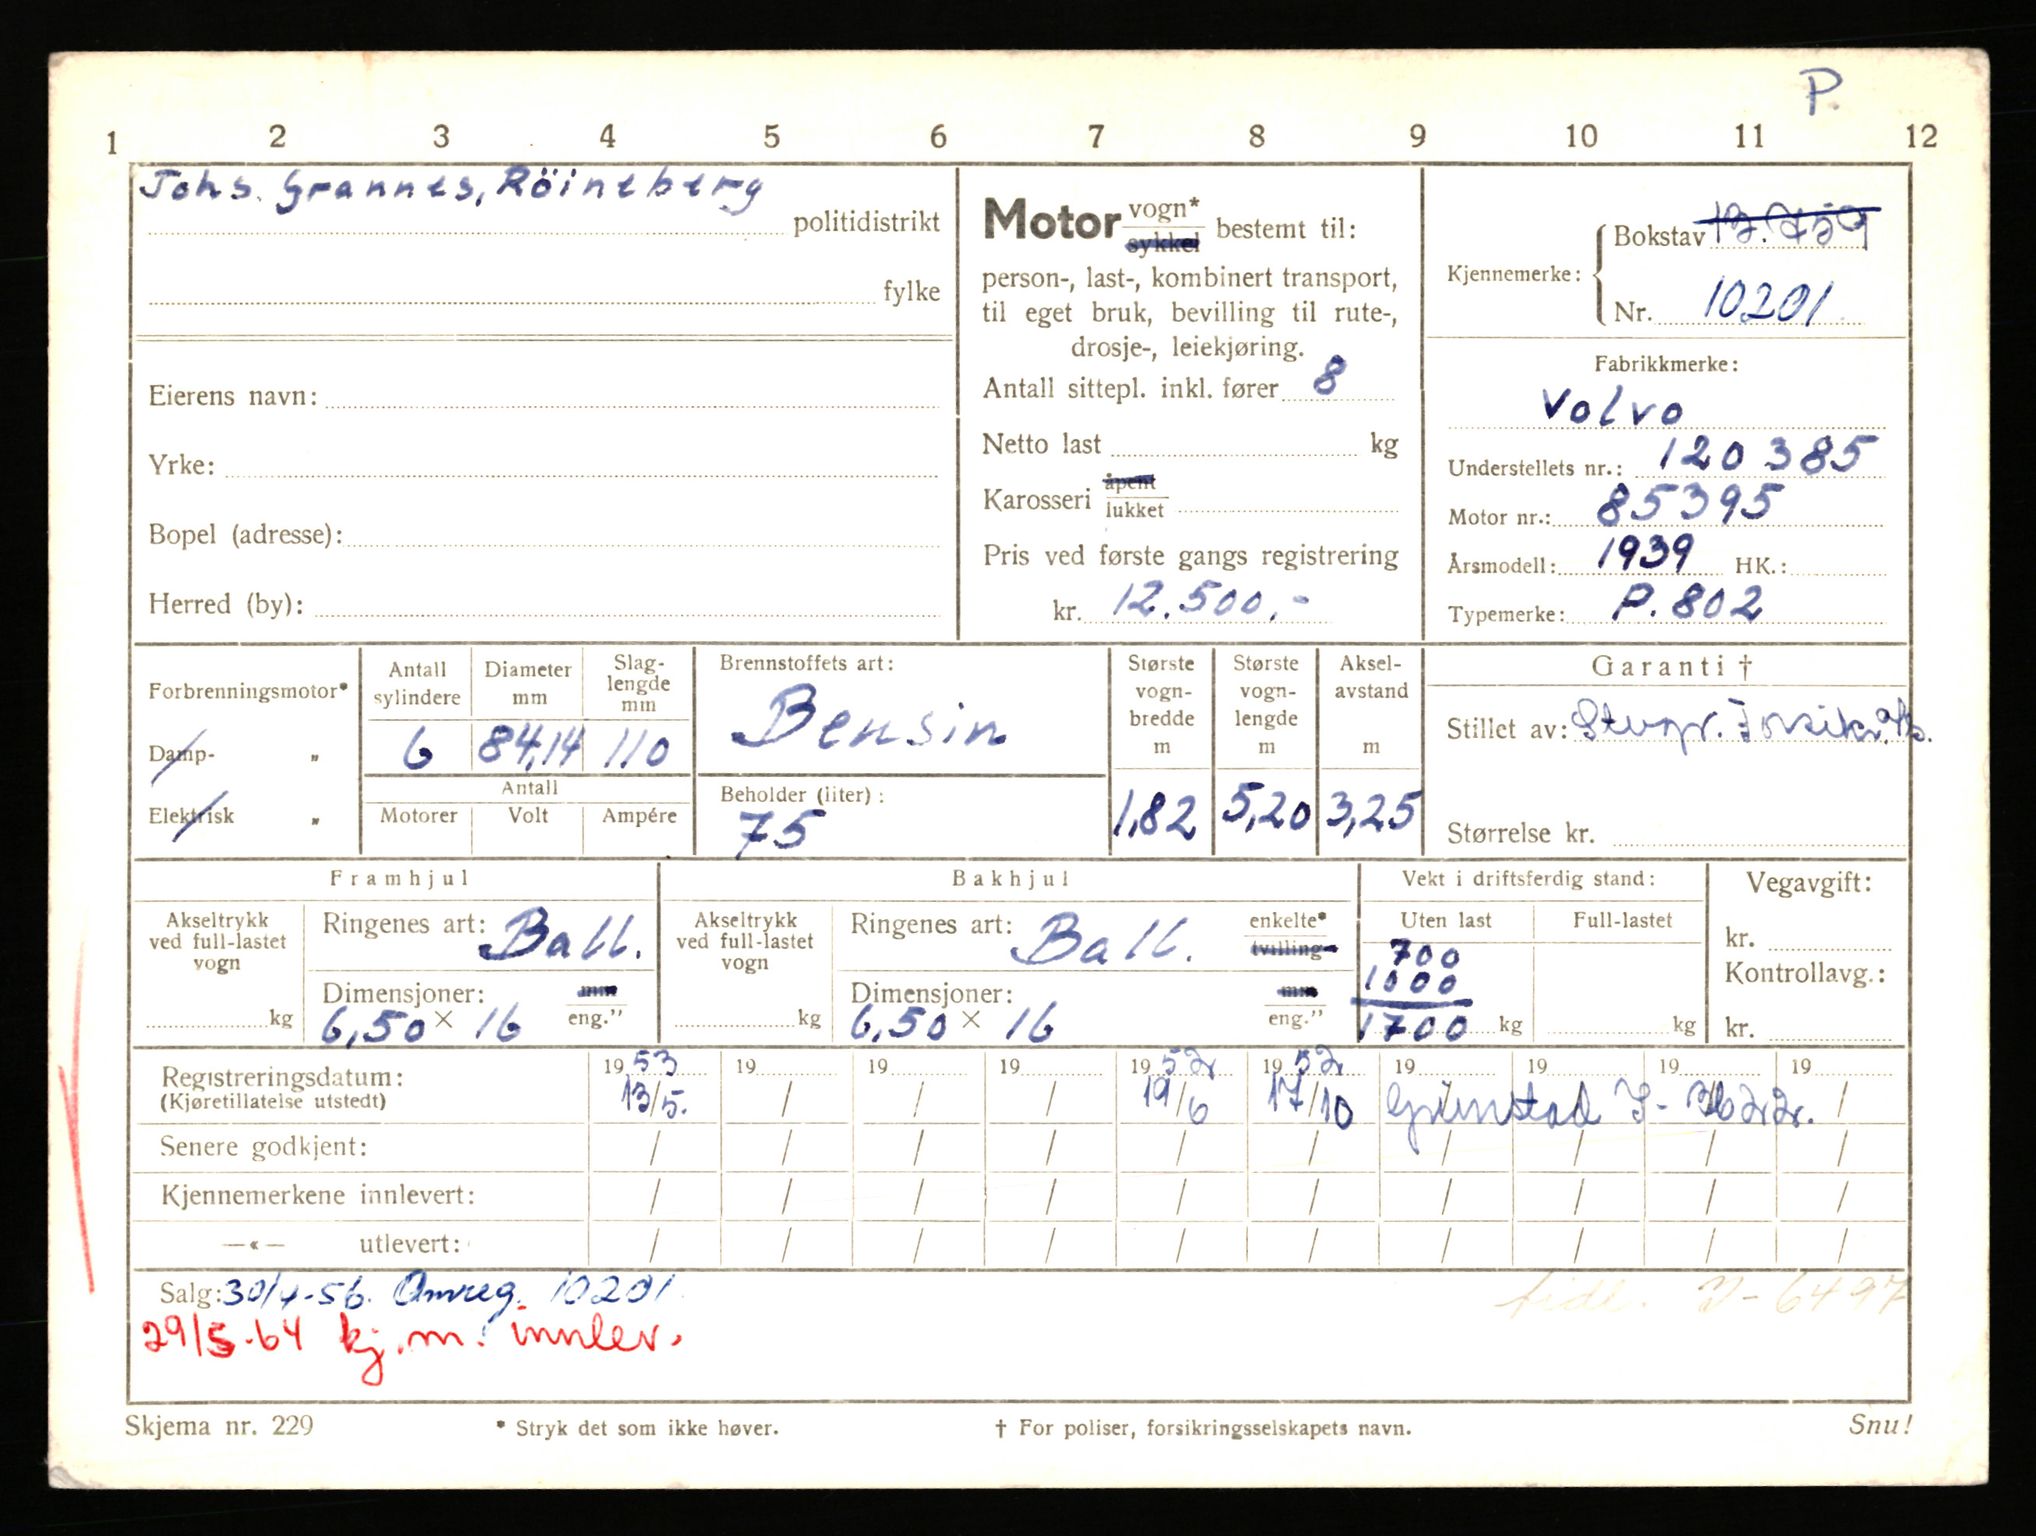 P.
1 2 3 4 5 6 7 8 9 10 11 12
Johs. Grannes, Röineberg
politidistrikt
fylke
Eierens navn:
Yrke:
Bopel (adresse):
Herred (by):
Motor vogn* sykkel bestemt til:
person-, last-, kombinert transport,
til eget bruk, bevilling til rute-,
drosje-, leiekjøring.
Antall sittepl. inkl. fører 8
Netto last kg
Karosseri åpent lukket
Pris ved første gangs registrering
kr. 12.500,-
Kjennemerke:
Bokstav
Nr. 10201
Fabrikkmerke:
Volvo
Understellets nr.: 120385
Motor nr.: 85395
Årsmodell: 1939 HK.:
Typemerke: P. 802
Forbrenningsmotor*
Damp- „
Elektrisk „
Antall sylindere
6
Diameter mm
84,14
Slag-lengde mm
110
Antall
Motorer Volt Ampére
Brennstoffets art:
Bensin
Beholder (liter):
75
Største vogn-bredde m
1,82
Største vogn-lengde m
5,20
Aksel-avstand m
3,25
Garanti †
Stillet av:
Størrelse kr.
Framhjul
Akseltrykk ved full-lastet vogn
kg
Ringenes art: Ball.
Dimensjoner: mm
6,50 × 16 eng."
Bakhjul
Akseltrykk ved full-lastet vogn
kg
Ringenes art: Ball. enkelte* tvilling-
Dimensjoner: mm
6,50 × 16 eng."
Vekt i driftsferdig stand:
Uten last Full-lastet
700
1000
1700 kg kg
Vegavgift:
kr.
Kontrollavg.:
kr.
Registreringsdatum: 19 53 19 19 19 19 52 19 52 19 19 19 19
(Kjøretillatelse utstedt) 13/5. / / / 19/6 17/10 Grimstad /
Senere godkjent: / / / / / / / / / /
Kjennemerkene innlevert: / / / / / / / / / /
—«— utlevert: / / / / / / / / / /
Salg: 30/4-56. Omreg. 10201 tidl. 6497
29/5-64 kj.m. innlev.
Skjema nr. 229 * Stryk det som ikke høver. † For poliser, forsikringsselskapets navn. Snu!